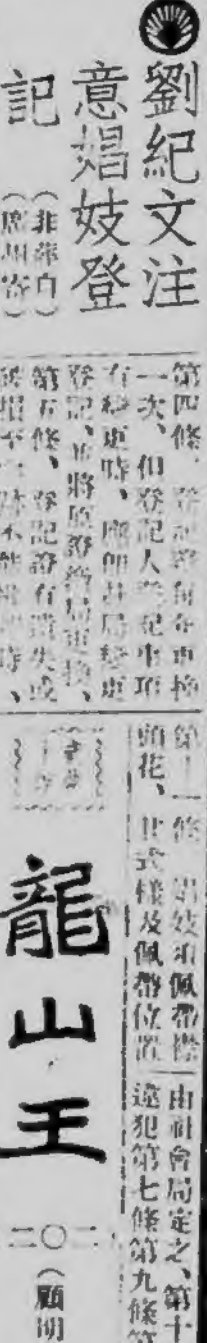 劉紀文注
意娼妓登
記
（非非自）
（廣州寄）
第四條、登記證每年更換
一次、但登記人登記事項
有變更時、應即赴局變更
登記、並將原證繳局更換、
第五條、登記證有遺失或
第十一條 娼妓須佩帶襟
頭花、其式樣及佩帶位置
由社會局定之、第十
違犯第七條第九條第
龍山王
二〇二
（顧明